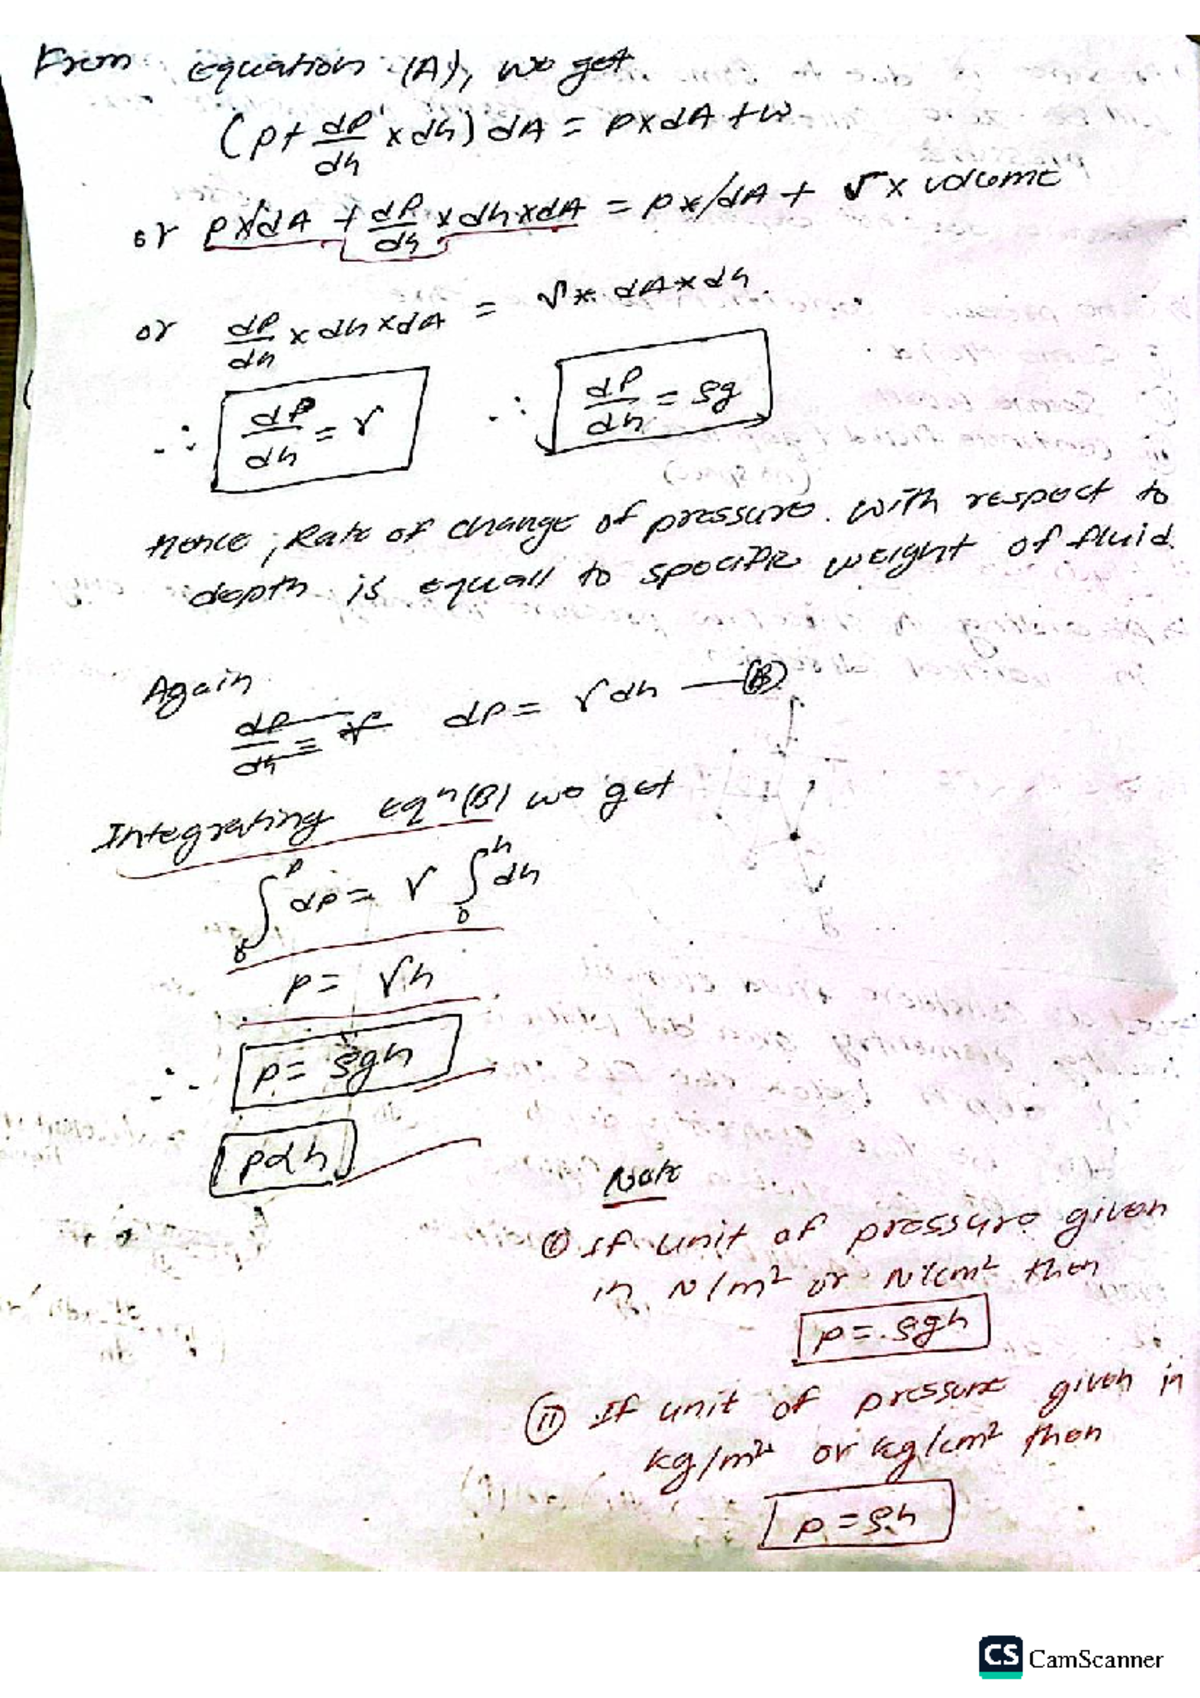 From Equation (A), we get
(p + dp/dh x dh) dA = p x dA + w
or p x dA + dp/dh x dh x dA = p x dA + γ x volume
or dp/dh x dh x dA = γ x dA x dh
∴ dp/dh = γ ∴ dp/dh = ρg
Hence, Rate of change of pressure with respect to
depth is equall to specific weight of fluid.
Again
dp/dh = γ dp = γ dh — (B)
Integrating Eqⁿ (B) we get
∫₀ᵖ dp = γ ∫₀ʰ dh
p = γh
∴ p = ρgh
p α h
Note
(i) If unit of pressure given
in N/m² or N/cm² then
p = ρgh
(ii) If unit of pressure given in
kg/m² or kg/cm² then
p = ρh
CS CamScanner